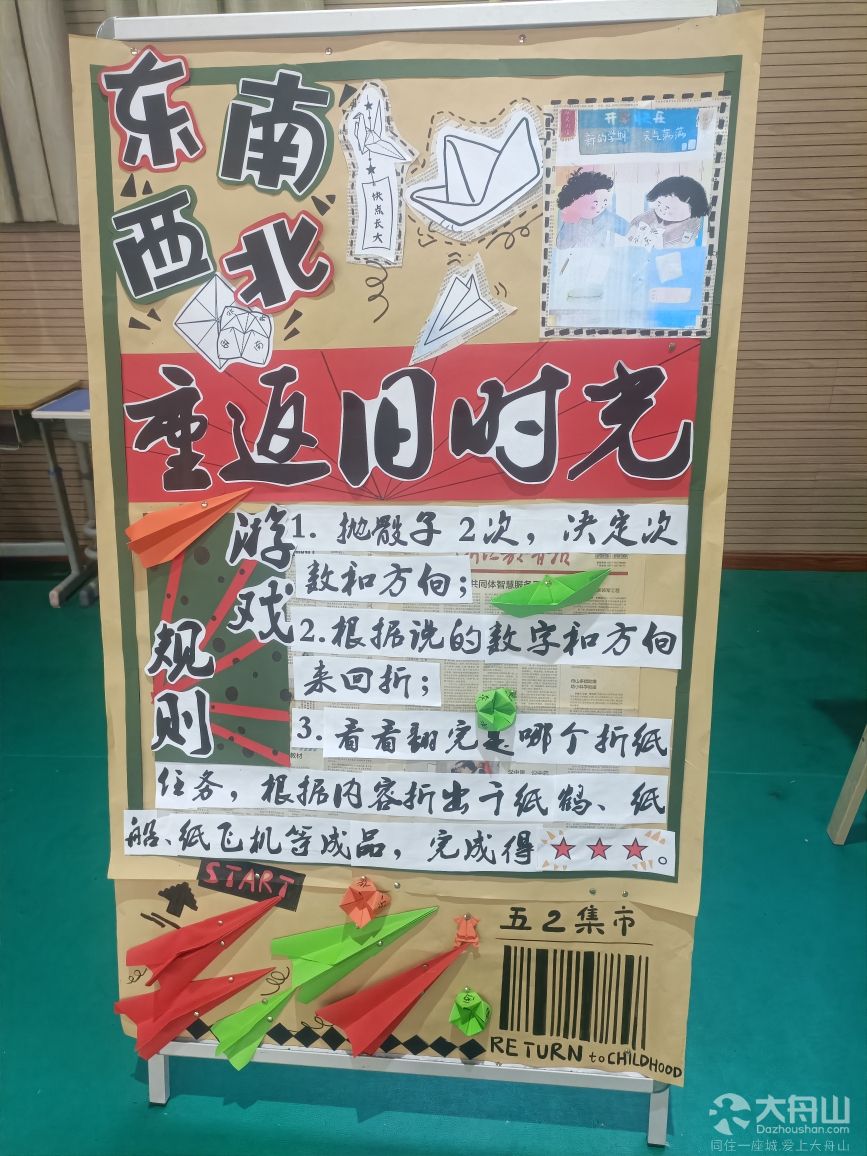 东南
西北
快点长大
重返旧时光
游戏
规则
1. 抛骰子2次，决定次
数和方向；
2.根据说的数字和方向
来回折；
3. 看看翻完是哪个折纸
任务，根据内容折出千纸鹤、纸
船、纸飞机等成品，完成得★★★。
共同体智慧服务
START
五2集市
RETURN to CHILDHOOD
大舟山
Dazhoushan.com
同住一座城.爱上大舟山